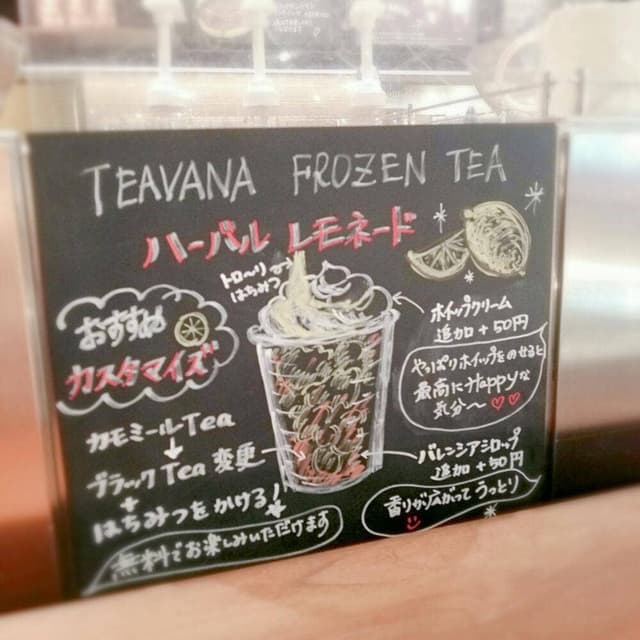 TEAVANA FROZEN TEA
ハーバル レモネード
トロ〜リ
はちみつ
おすすめ
カスタマイズ
カモミールTea
↓
ブラックTea 変更
+
はちみつをかける!
無料でお楽しみいただけます
ホイップクリーム
追加 + 50円
やっぱりホイップをのせると
最高にHappyな
気分〜♡♡
バレンシアシロップ
追加 + 50円
香りが広がって うっとり